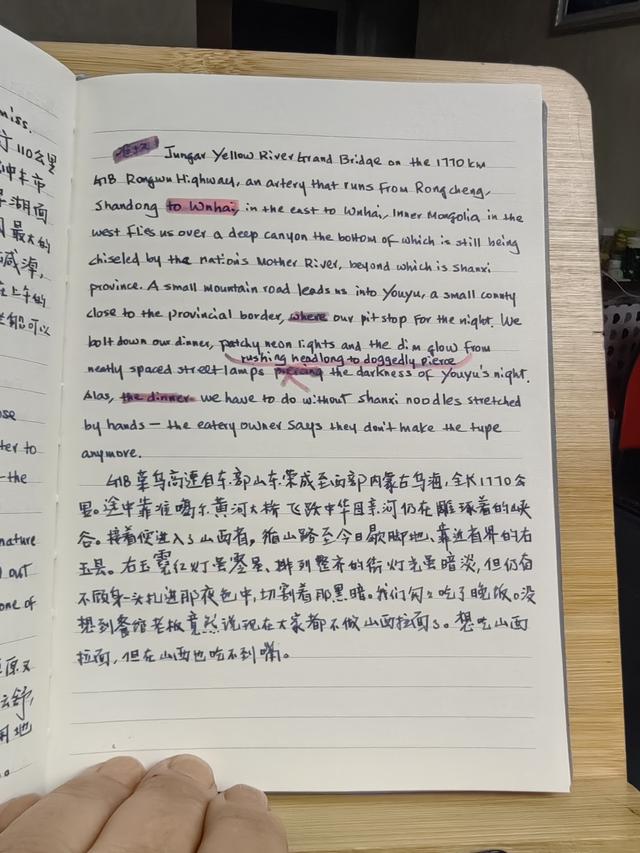 miss.
110公里
Jungar Yellow River Grand Bridge on the 1770 km
G18 Rongwu Highway, an artery that runs from Rongcheng,
Shandong to Wuhai, in the east to Wuhai, Inner Mongolia in the
west flies us over a deep canyon the bottom of which is still being
chiseled by the nation's Mother River, beyond which is Shanxi
province. A small mountain road leads us into Youyu, a small county
close to the provincial border, where our pit stop for the night. We
bolt down our dinner, patchy neon lights and the dim glow from
rushing headlong to doggedly pierce
neatly spaced street lamps piercing the darkness of Youyu's night.
Alas, the dinner we have to do without shanxi noodles stretched
by hands — the eatery owner says they don't make the type
anymore.
G18 荣乌高速自东部山东荣成至西部内蒙古乌海,全长1770公
里。途中靠准噶尔黄河大桥飞跃中华母亲河仍在雕琢着的峡
谷。接着便进入了山西省。循山路至今日歇脚地、靠近省界的右
玉县。右玉霓虹灯虽零星、排列整齐的街灯光虽暗淡,但仍奋
不顾身一头扎进那夜色中,切割着那黑暗。我们匆匆吃了晚饭。没
想到餐馆老板竟然说现在大家都不做山西拉面了。想吃山西
拉面,但在山西也吃不到嘞。